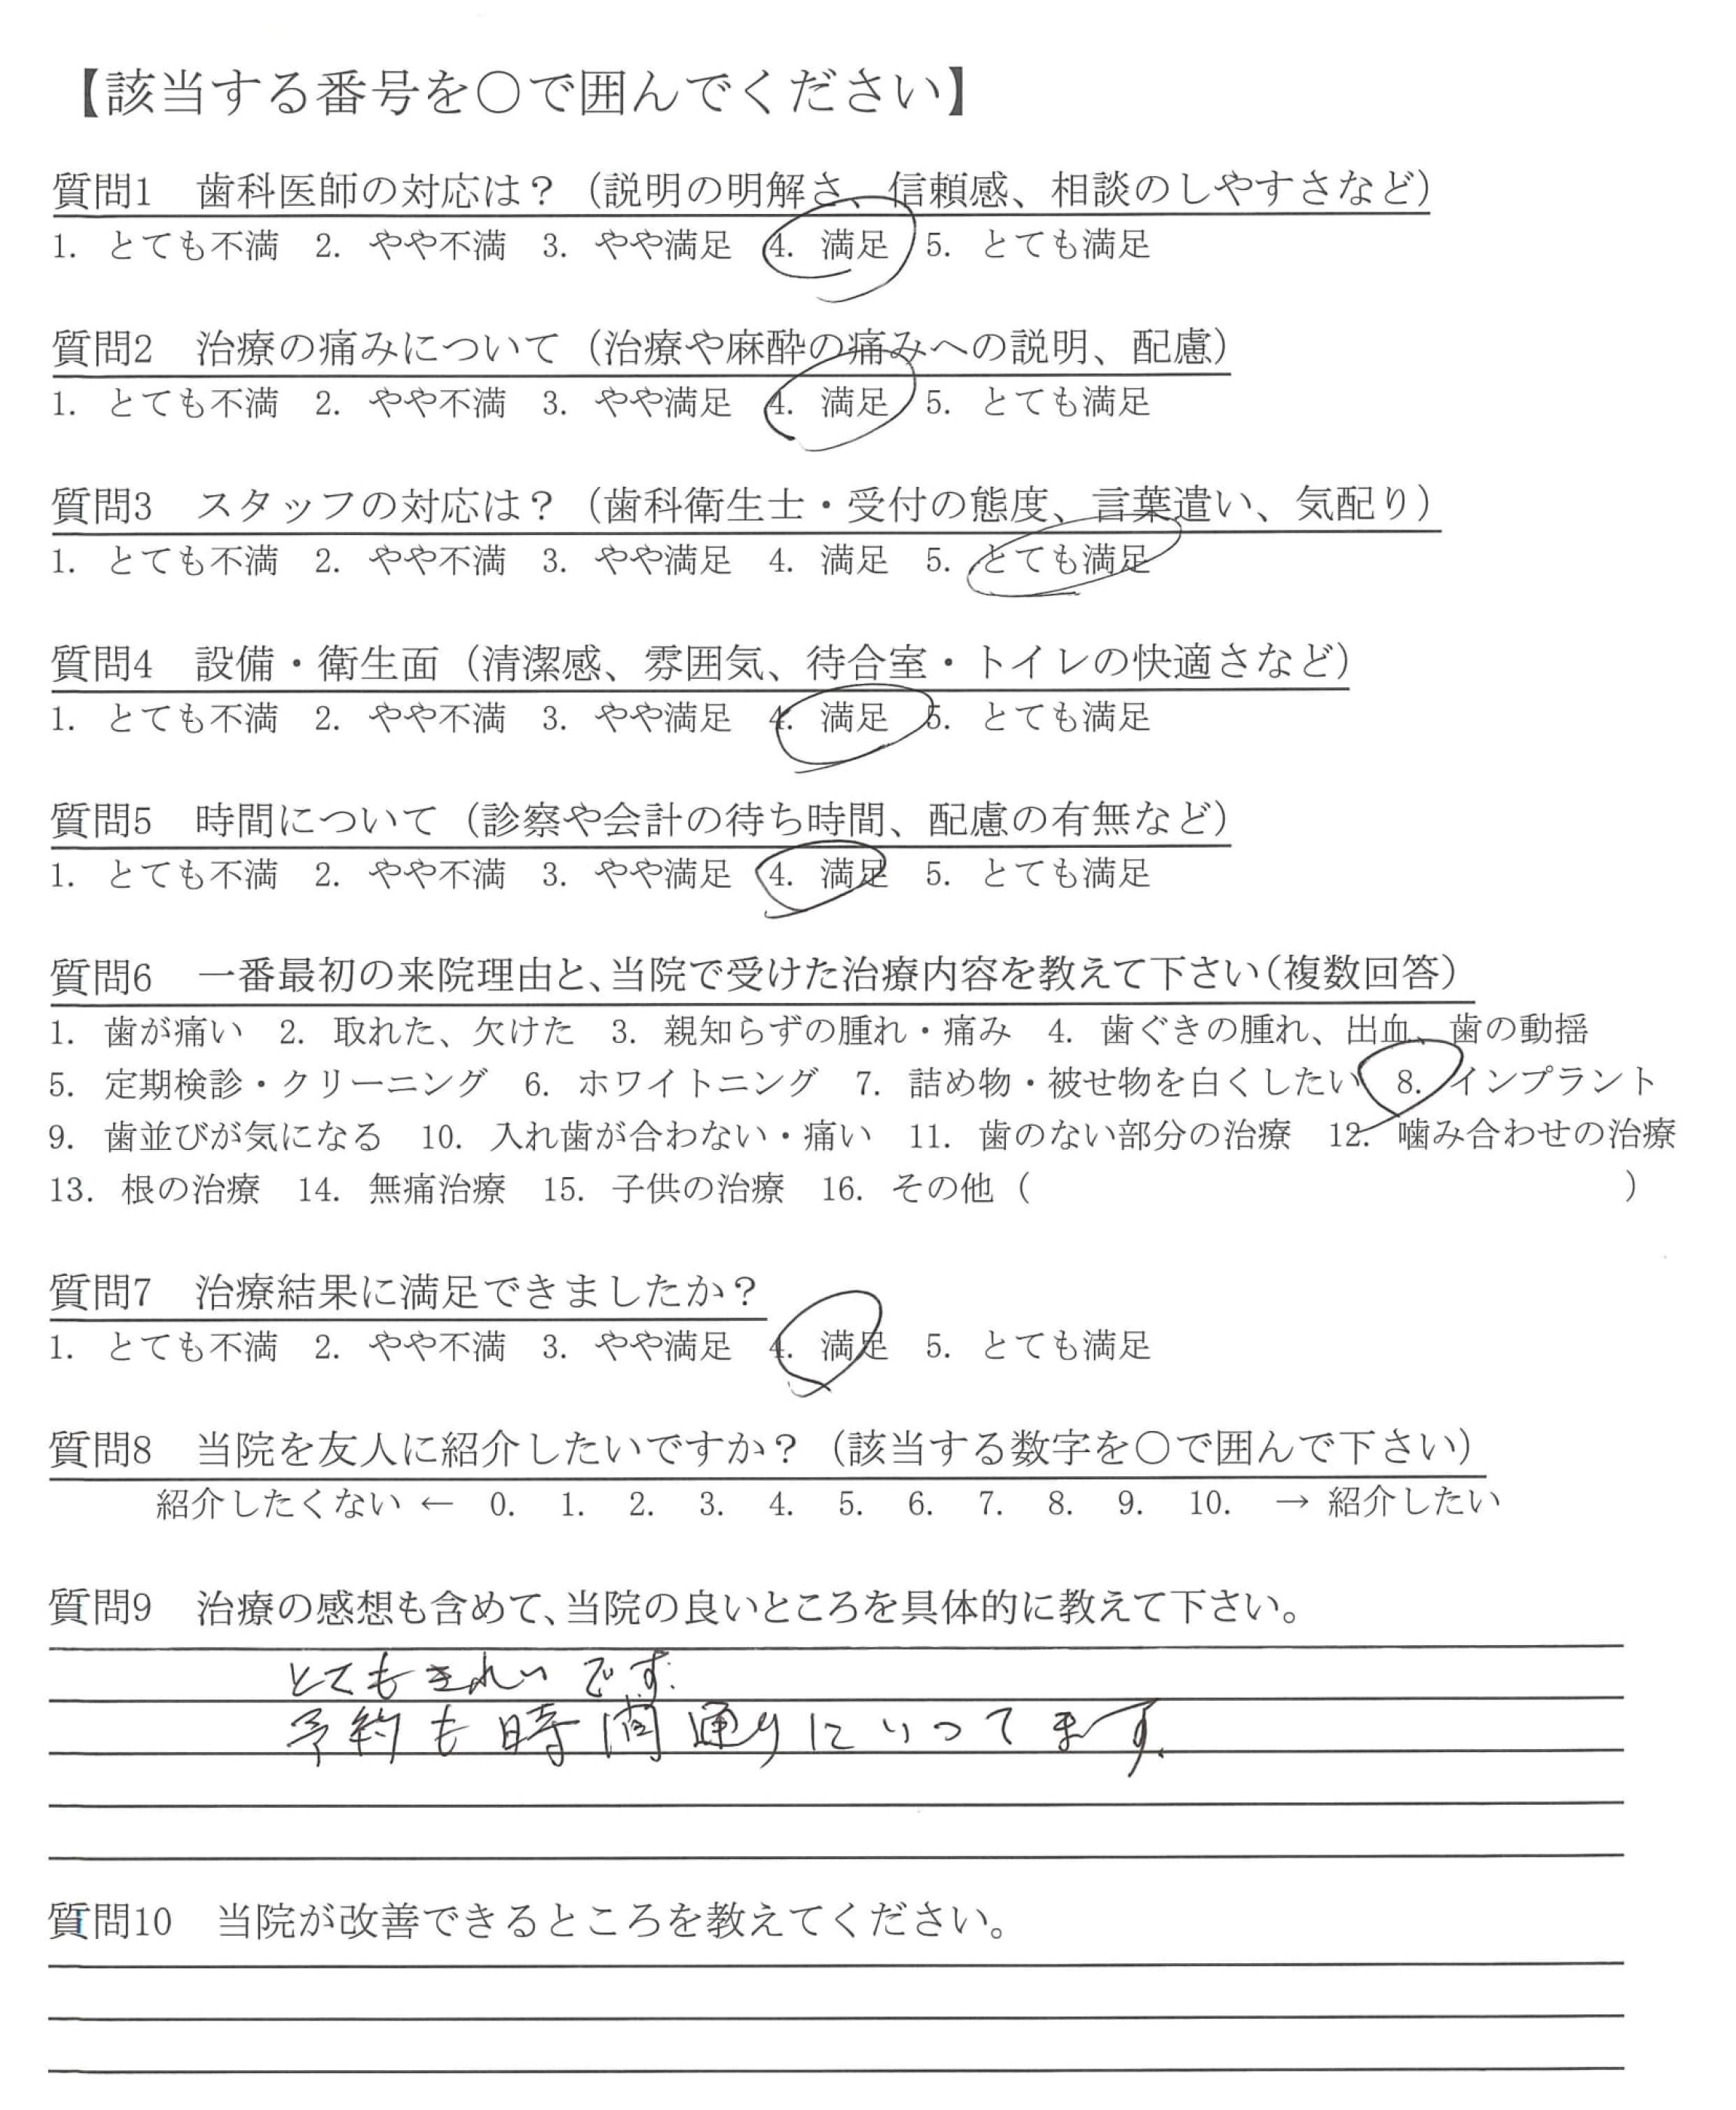 【該当する番号を○で囲んでください】
質問1　歯科医師の対応は？（説明の明解さ、信頼感、相談のしやすさなど）
1. とても不満　2. やや不満　3. やや満足　4. 満足　5. とても満足
質問2　治療の痛みについて（治療や麻酔の痛みへの説明、配慮）
1. とても不満　2. やや不満　3. やや満足　4. 満足　5. とても満足
質問3　スタッフの対応は？（歯科衛生士・受付の態度、言葉遣い、気配り）
1. とても不満　2. やや不満　3. やや満足　4. 満足　5. とても満足
質問4　設備・衛生面（清潔感、雰囲気、待合室・トイレの快適さなど）
1. とても不満　2. やや不満　3. やや満足　4. 満足　5. とても満足
質問5　時間について（診察や会計の待ち時間、配慮の有無など）
1. とても不満　2. やや不満　3. やや満足　4. 満足　5. とても満足
質問6　一番最初の来院理由と、当院で受けた治療内容を教えて下さい（複数回答）
1. 歯が痛い　2. 取れた、欠けた　3. 親知らずの腫れ・痛み　4. 歯ぐきの腫れ、出血、歯の動揺
5. 定期検診・クリーニング　6. ホワイトニング　7. 詰め物・被せ物を白くしたい　8. インプラント
9. 歯並びが気になる　10. 入れ歯が合わない・痛い　11. 歯のない部分の治療　12. 噛み合わせの治療
13. 根の治療　14. 無痛治療　15. 子供の治療　16. その他（　　　　　　　　　　）
質問7　治療結果に満足できましたか？
1. とても不満　2. やや不満　3. やや満足　4. 満足　5. とても満足
質問8　当院を友人に紹介したいですか？（該当する数字を○で囲んで下さい）
紹介したくない ← 0. 1. 2. 3. 4. 5. 6. 7. 8. 9. 10. → 紹介したい
質問9　治療の感想も含めて、当院の良いところを具体的に教えて下さい。
とてもきれいです.
予約も時間通りにいってます.
質問10　当院が改善できるところを教えてください。